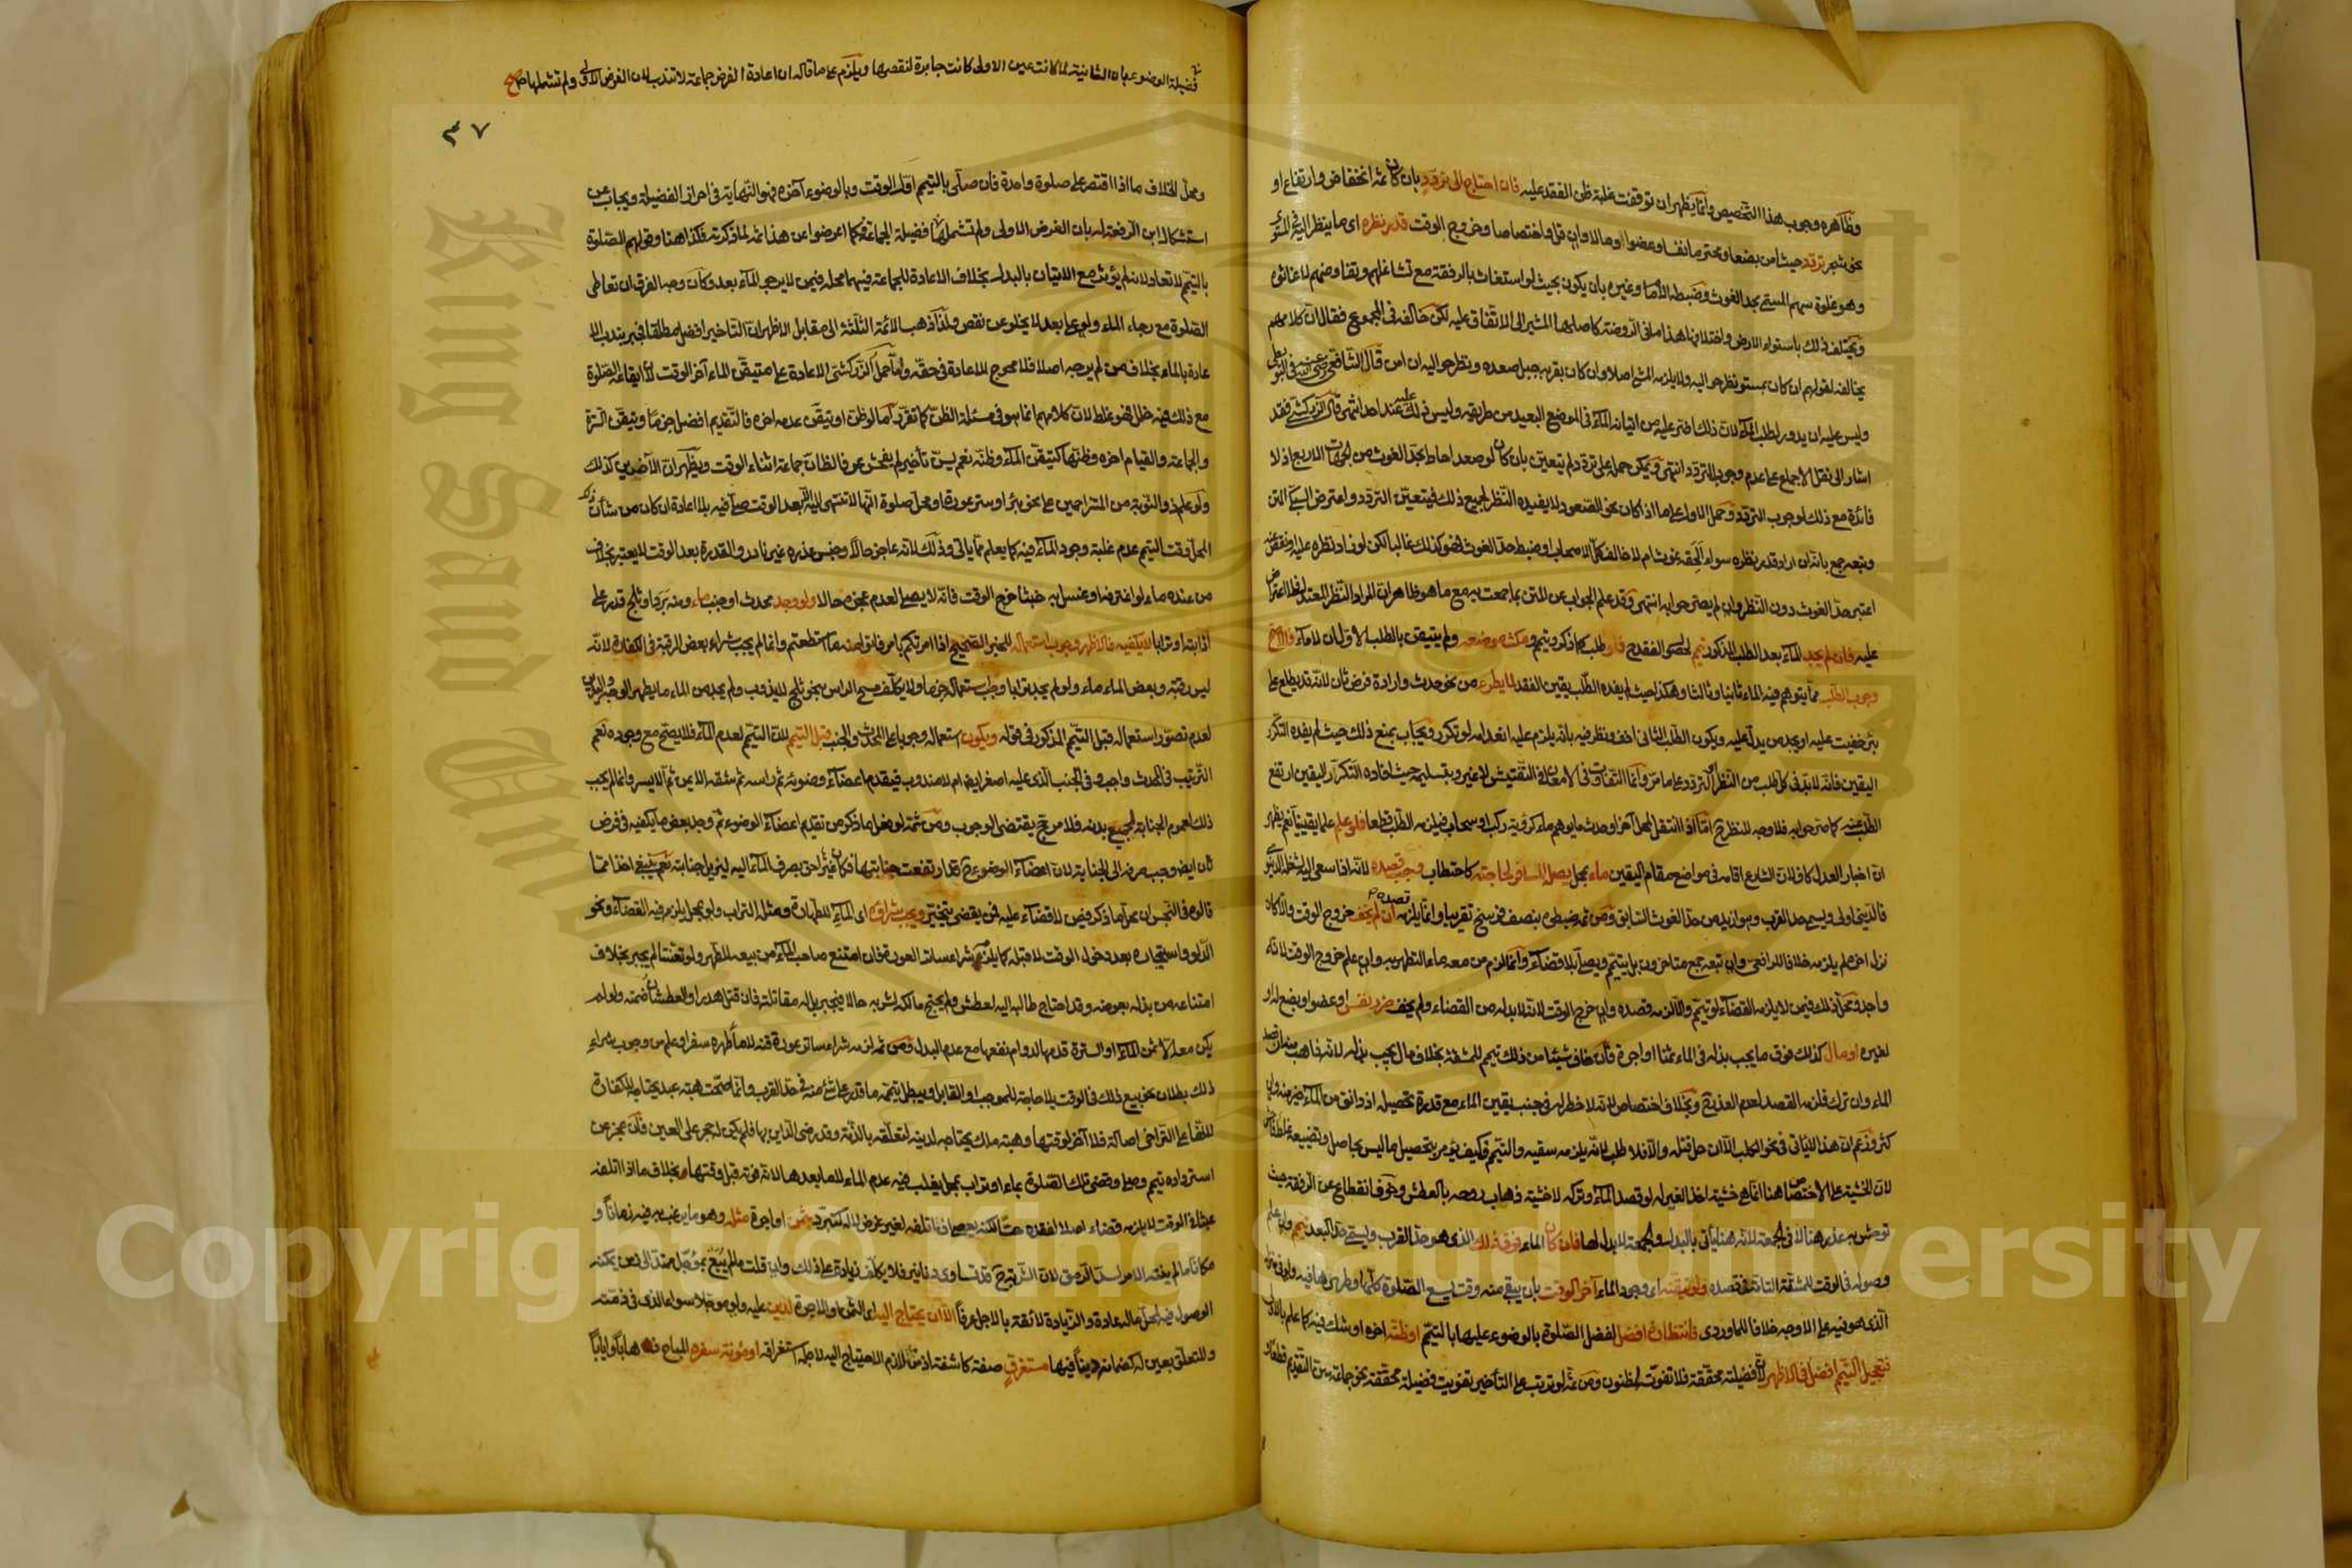 وظاهره وجوب هذا التخصيص وانما يظهر ان توقفت غلبة ظن الفقد عليه فان احتاج الى تردد بان كان ثمة انخفاض وارتفاع او
نحو شجر تردد حيث امن بضعا ومحترما نفسا وعضوا ومالا وان قل واختصاصا وخروج الوقت قدر نظره اى ما ينظر اليه فى المستو
وهو غلوة سهم المسمى بحد الغوث وضبطه الامام وغيره بان يكون بحيث لو استغاث بالرفقة مع تشاغلهم وتفاوضهم لاغاثوه
ويختلف ذلك باستواء الارض واختلافها هذا ما فى الروضة كاصلها المشير الى الاتفاق عليه لكن خالفه فى المجموع فقال ان كلامهم
يخالفه لقولهم ان كان بمستو نظر حواليه ولا يلزمه المشى اصلا وان كان بقربه جبل صعده ونظر حواليه ان امن قال الشافعى رضى الله عنه فى البويطى
وليس عليه ان يدور لطلب الماء لان ذلك اضر عليه من اتيانه الماء فى الموضع البعيد من طريقه وليس ذلك عليه عند احد انتهى قال الزركشى فقد
اشار الى نقل الاجماع على عدم وجوب التردد انتهى ويمكن حمله على تردد لم يتعين بان كان لو صعد احاط بحد الغوث من الجهات الاربع اذ لا
فائدة مع ذلك لوجوب التردد وحمل الاول على ما اذا كان نحو الصعود لا يفيده النظر لجميع ذلك فيتعين التردد واعترض السبكى المتن
وتبعه جمع بانه ان اراد قدر نظره سواء الحقه غوث ام لا خالف كل الاصحاب او ضبط حد الغوث فهو كذلك غالبا لكن لو زاد نظره عليه او نقص عنه
اعتبر حد الغوث دون النظر وان لم يصر حوابه انتهى وقد علم الجواب عن المتن بما جمعت به مع ما هو ظاهر ان المراد النظر المعتدل فلا اعتراض
عليه فان لم يجد الماء بعد الطلب المذكور تيمم لحصول الفقد ح فلو طلب كما ذكر وتيمم ومكث موضعه ولم يتيقن بالطلب الاول ان لا ماء فالاصح
وجوب الطلب مما يتوهم فيه الماء ثانيا وثالثا وهكذا حيث لم يفده الطلب يقين الفقد لما يطرء من نحو حدث وارادة فرض ثان لانه قد يطلع على
بئر خفيت عليه او يجد من يدله عليه ويكون الطلب الثانى اخف ونظر فيه بانه يلزم عليه انعدامه لو تكرر ويجاب بمنع ذلك حيث لم يفده التكرر
اليقين فانه لا بد فى كل طلب من النظر او التردد على ما مر وانما التفاوت فى الامعان فى التفتيش لا غير وبتسليمه حيث افاده التكرار اليقين ارتفع
الطلب عنه كما صرحوا به فلا وجه للنظر ح اما اذا انتقل لمحل آخر او حدث ما يوهم ماء كرؤية ركب او سحاب فيلزمه الطلب قطعا فلو علم علما يقينيا نعم يظهر
ان اخبار العدل كاف لان الشارع اقامه فى مواضع مقام اليقين ماء بمحل يصله المسافر لحاجته كاحتطاب وجب قصده لانه اذا سعى اليه لشغله الدنيوى
فالدينى اولى ويسمى حد القرب وهو ازيد من حد الغوث السابق ومن ثم ضبطوه بنصف فرسخ تقريبا وانما يلزمه قصده ان لم يخف خروج الوقت والا كان
نزل اخره لم يلزمه خلافا للرافعى وان تبعه جمع متاخرون بل يتيمم ويصلى بلا قضاء وانما لزم من معه ماء التطهر به وان علم خروج الوقت لانه
واجد ومحل ذلك فيمن لا يلزمه القضاء لو تيمم والا لزمه قصده وان خرج الوقت لانه لا بد له من القضاء ولم يخف ضرر نفس او عضو او بضع له او
لغيره او مال كذلك فوق ما يجب بذله فى الماء ثمنا او اجرة فان خاف شيئا من ذلك تيمم للمشقة بخلاف مال يجب بذله لانه ذاهب منه ان قصد
الماء وان ترك فلزمه القصد لعدم العذر ح وبخلاف اختصاص لانه لا خطر له فى جنب يقين الماء مع قدرة تحصيله اذ دانق من الماء خير منه وان
كثر وزعم ان هذا لا ياتى فى نحو الكلب الا ان حل قتله والا فلا طلب لانه يلزمه سقيه والتيمم فكيف يؤمر بتحصيل ما ليس بحاصل وتضييعه غلط فاحش
لان الخشية على الاختصاص هنا انما هى خشية اخذ الغير له لو قصد الماء وتركه لا خشية ذهاب روحه بالعطش وخوف انقطاع عن الرفقة حيث
توحش به عذر هنا لا فى الجمعة لانه هنا ياتى بالبدل والجمعة لا بدل لها فان كان الماء فوق ذلك الذى هو حد القرب ويسمى حد البعد تيمم وان علم
وصوله فى الوقت للمشقة التامة فى قصده ولو تيقنه اى وجود الماء آخر الوقت بان يبقى منه وقت يسع الصلاة كلها وطهرها فيه ولو فى منزله
الذى هو فيه على الاوجه خلافا للماوردى فانتظاره افضل لفضل الصلاة بالوضوء عليها بالتيمم او ظنه اخره او شك فيه كما علم بالاولى
فتعجيل التيمم افضل فى الاظهر لان فضيلته محققة فلا تفوت لمظنون ومن ثم لو ترتب على التأخير تفويت فضيلة محققة نحو جماعة سن التقديم قطعا
فضيلة الوضوء بان الثانية لما كانت عين الاولى كانت جابرة لنقصها ويلزم على ما قاله ان اعادة الفرض جماعة لا تندب لان الفرض الاولى ولم تشملها صح
٣٧
ومحل الخلاف ما اذا اقتصر على صلوة واحدة فان صلى بالتيمم اول الوقت وبالوضوء آخره فهو النهاية فى احراز الفضيلة ويجاب عن
استشكال ابن الرفعة له بان الفرض الاولى ولم تشملها فضيلة الجماعة فكما اعرضوا عن هذا ثمه لما ذكرته فكذا هنا وقولهم الصلوة
بالتيمم لا تعاد لانه لم يؤثر مع الاتيان بالبدل بخلاف الاعادة للجماعة فيهما محله فيمن لا يرجو الماء بعد وكان وجه الفرق ان تعاطى
الصلوة مع رجاء الماء ولو على بعد لا يخلو عن نقص ولذا ذهب الائمة الثلاثة الى مقابل الاظهر ان التاخير افضل مطلقا فجبر بندب الا
عادة بالماء بخلاف من لم يرجه اصلا فلا محوج للاعادة فى حقه واما حمل الزركشى الاعادة على متيقن الماء آخر الوقت لا ايقاعه الصلوة
مع ذلك فيه خلل فهو غلط لان كلامهم انما هو فى مسئلة الظن كما تقرر اما لو ظن او تيقن عدمه اخره فالتقديم افضل جزما وتيقن السترة
والجماعة والقيام اخره وظنها كتيقن الماء وظنه نعم يسن تأخير لم يفحش عرفا لظان جماعة اثناء الوقت ويظهر ان الآخرين كذلك
ولو علم ذو النوبة من المتزاحمين على نحو بئر او ستر عورة او محل صلوة انها لا تنتهى اليه الا بعد الوقت صلى فيه بلا اعادة ان كان من شأن ذلك
المحل وقت التيمم عدم غلبة وجود الماء فيه كما يعلم مما ياتى وذلك لانه عاجز حالا وجنس عذره غير نادر والقدرة بعد الوقت لا يعتبر بخلاف
من عنده ماء لو اغترفه او غسل به خبثا خرج الوقت فانه لا يصلى لعدم عجزه حالا ولو وجد محدث او جنب ماء ومنه برد او ثلج قدر على
اذابته او ترابا لا يكفيه فالاظهر وجوب استعماله للخبر الصحيح اذا امرتكم بامر فاتوا منه ما استطعتم وانما لم يجب شراء بعض الرقبة فى الكفارة لانه
ليس رقبة وبعض الماء ماء ولو لم يجد ترابا وجب استعماله جزما ولا يكلف مسح الراس بنحو ثلج لا يذوب ولم يجد من الماء ما يطهر الوجه واليدين
لعدم تصور استعماله قبل التيمم المذكور فى قوله ويكون استعماله وجوبا على المحدث والجنب قبل التيمم لان التيمم لعدم الماء فلا يصح مع وجوده نعم
الترتيب فى المحدث واجب وفى الجنب الذى عليه اصغر ايضا ام لا مندوب فيقدم اعضاء وضوئه ثم راسه ثم شقه الايمن ثم الايسر وانما لم يجب
ذلك لعموم الجنابة لجميع بدنه فلا مرجح يقتضى الوجوب ومن ثمة لو فعل ما ذكر من تقديم اعضاء الوضوء ثم وجد بعض ما يكفيه فى فرض
ثان ايضا وجب صرفه الى الجنابة لان اعضاء الوضوء ح قد ارتفعت جنابتها فكان غيرها احق بصرف الماء اليه ليزيل جنابته نعم ينبغى اخذا مما
قالوه فى النجس ان محل ما ذكر فيمن لا قضاء عليه فمن يقضى يتخير ويجب شراؤه اى الماء للطهارة ومثله التراب ولو بمحل يلزمه فيه القضاء ونحو
الدلو واستيجاره بعد دخول الوقت لا قبله كما يلزمه شراء ساتر العورة فان امتنع صاحب الماء من بيعه للطهر ولو تعنتا لم يجبر بخلاف
امتناعه من بذله بعوضه وقد احتاج طالبه اليه لعطش ولم يحتج مالكه لشربه حالا فيجبر بل له مقاتلته فان قتل هدر او العطشان ضمنه ولو لم
يكن معه الا ثمن الماء او السترة قدمها لدوام نفعها مع عدم البدل ومن ثم لزمه شراء ساتر عورة قنه لا ماء طهره سفرا وعلم من وجوب شراء
ذلك بطلان نحو بيع ذلك فى الوقت بلا حاجة للموجب او القابل ويبطل تيممه ما قدر على شئ منه فى حد القرب وانما صحت هبة عبد يحتاجه للكفارة
لانها على التراخى اصالة فلا آخر لوقتها وهبة ملك يحتاجه لدينه لتعلقه بالذمة وقد رضى الدائن بها فلم يكن له حجر على العين فان عجز من
استرداده تيمم وصلى وقضى تلك الصلوة بماء او تراب بمحل يغلب فيه عدم الماء لا ما بعدها لانه فوته قبل وقتها وبخلاف ما اذا اتلفه
عبثا فى الوقت لا يلزمه قضاء اصلا لفقده حسا لكنه يعصى ان اتلفه لغير غرض لا له كتبرد بثمن او اجرة مثله وهو ما يرغب به فيه زمانا و
مكانا ما لم ينته الامر لسد الرمق لان الشربة ح قد تساوى دنانير فلا يكلف زيادة على ذلك وان قلت ما لم يبع بمؤجل ممتد الى زمن يمكنه
الوصول فيه لمحل ماله عادة والزيادة لائقة بالاجل عرفا الا ان يحتاج اليه اى الثمن او الاجرة لدين عليه ولو مؤجلا سواء الذى فى ذمته
والمتعلق بعين له كضمانه دينا فيها مستغرق صفة كاشفة اذ من لازم الاحتياج اليه لاجله استغراقه او مؤنة سفره المباح ذهابا وايابا
Copyright © King Saud University
King Saud Univ